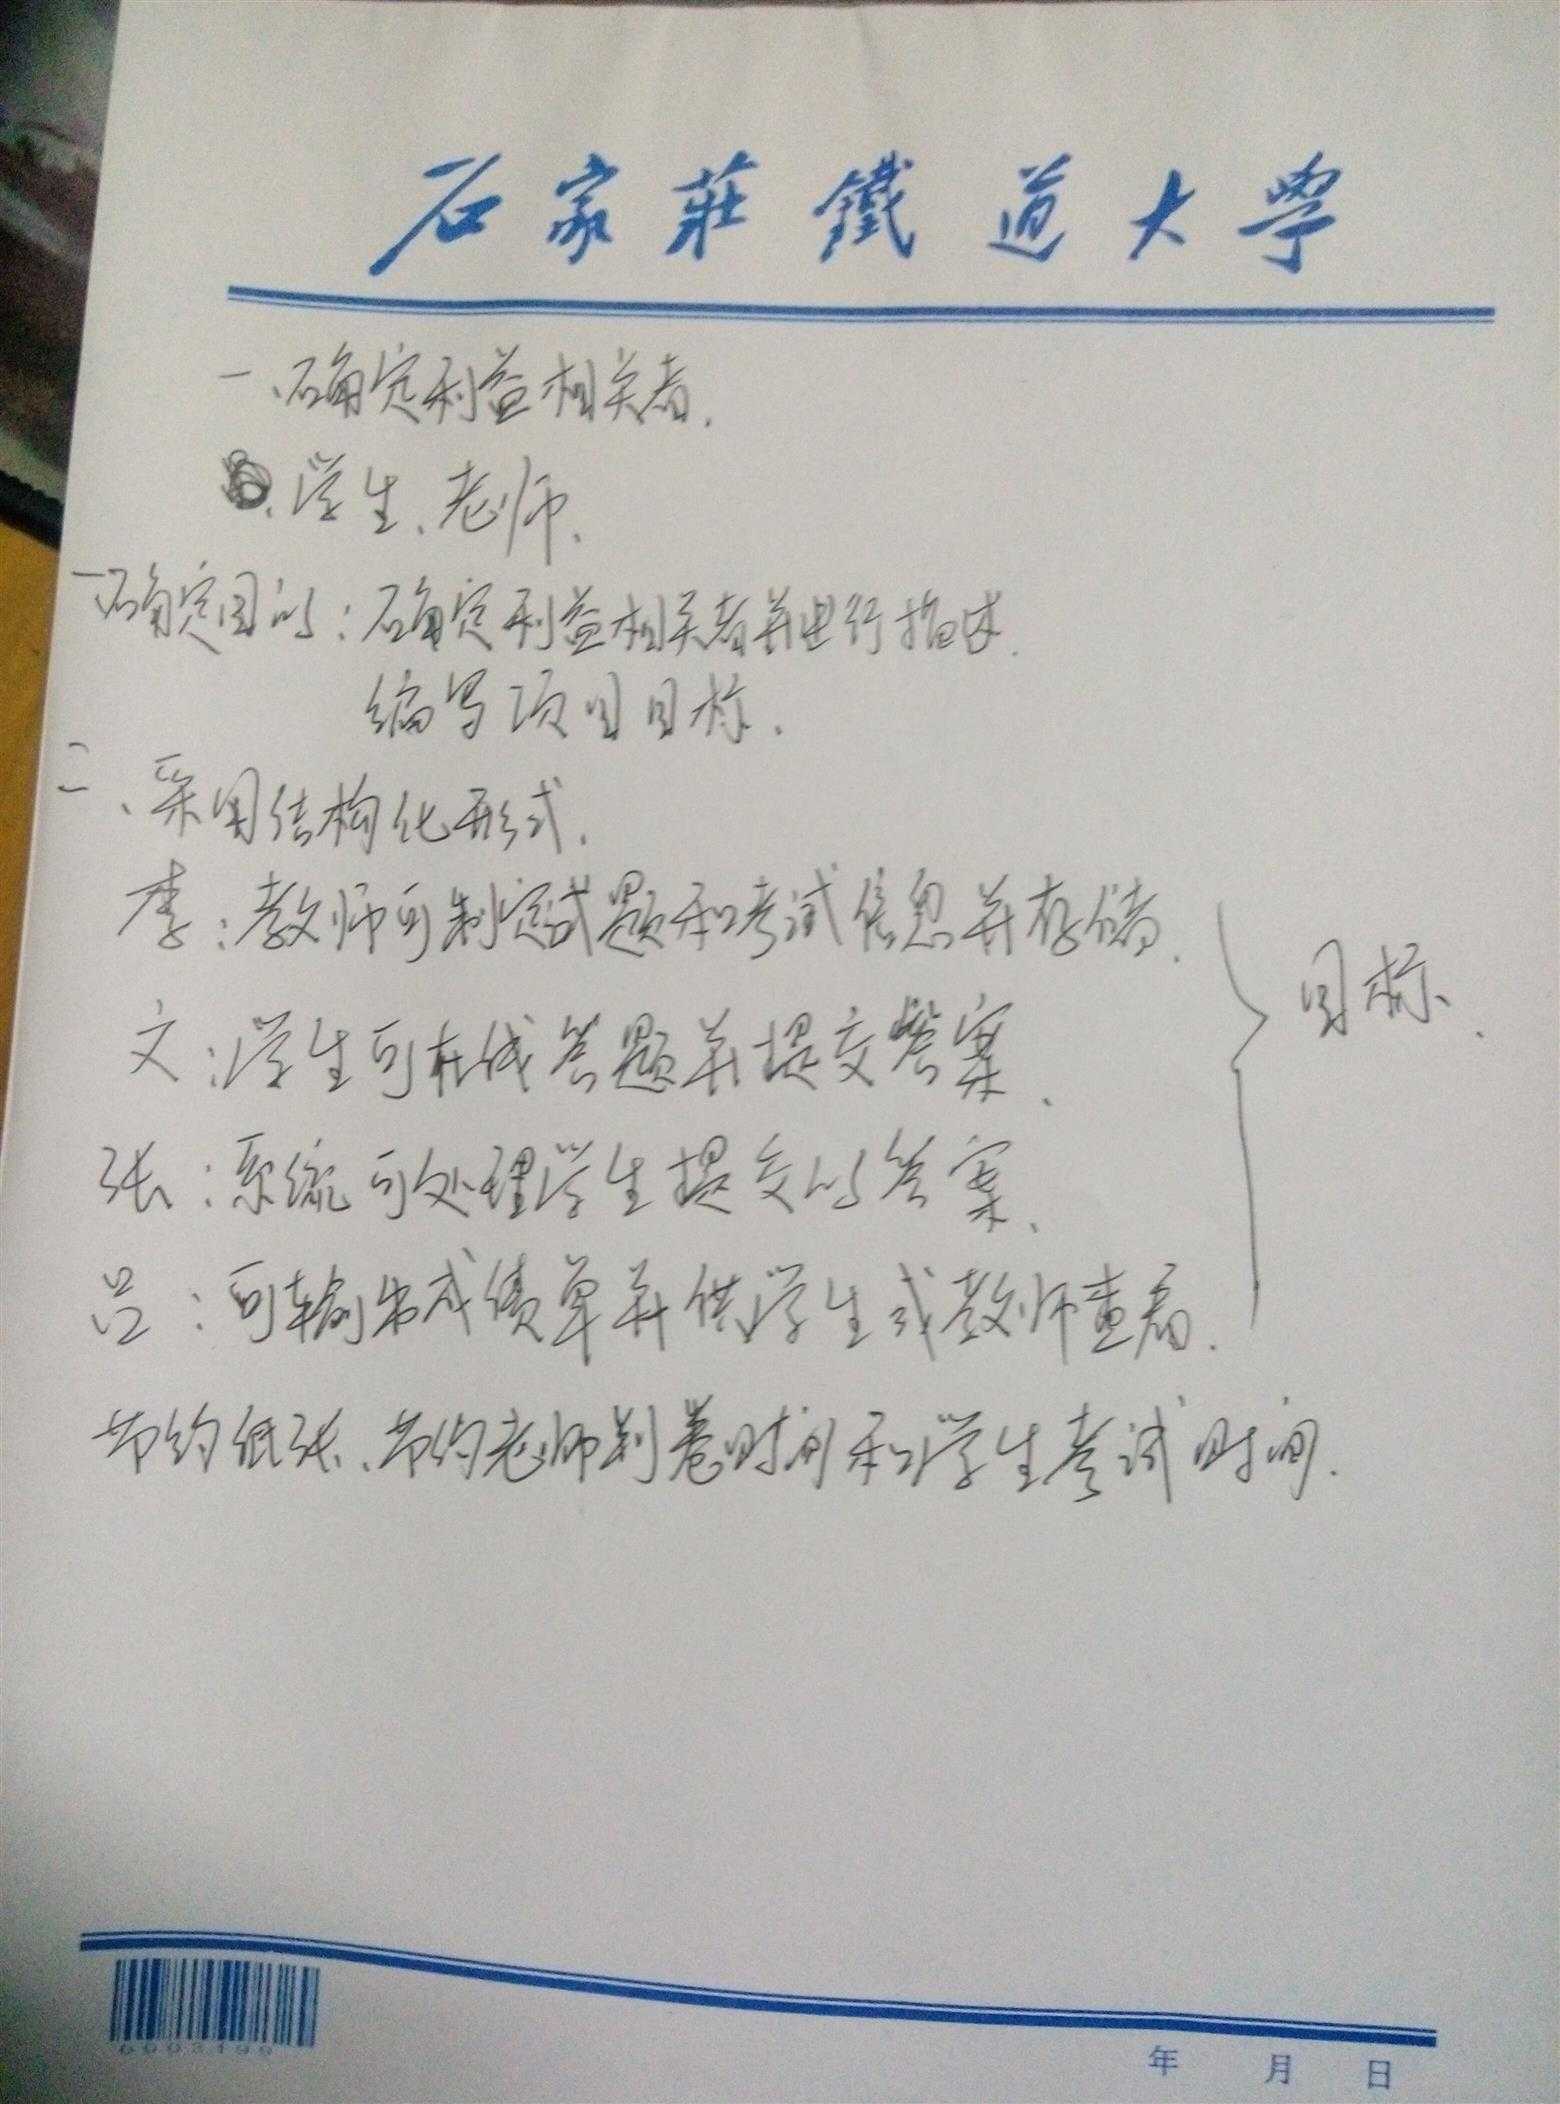 石家莊鐵道大學
一、确定利益相关者.
、学生、老师.
一、确定目的:确定利益相关者并进行描述.
编写项目目标.
二、采用结构化形式.
李:教师可制定试题和考试信息并存储.
目标.
文:学生可在线答题并提交答案.
张:系统可处理学生提交的答案.
吕:可输出成绩单并供学生或教师查看.
节约纸张、节约老师判卷时间和学生考试时间.
年 月 日